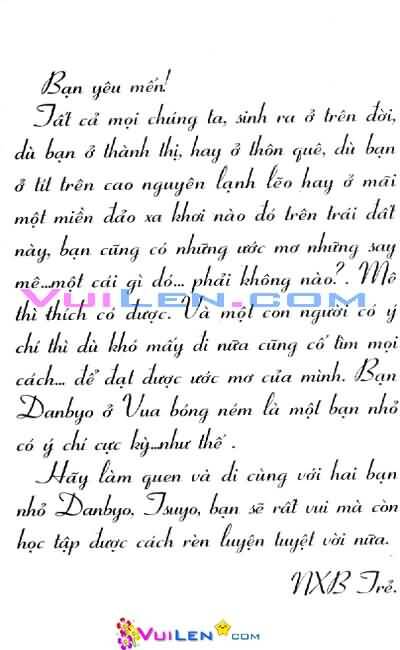 Bạn yêu mến!
Tất cả mọi chúng ta, sinh ra ở trên đời,
dù bạn ở thành thị, hay ở thôn quê, dù bạn
ở tít trên cao nguyên lạnh lẽo hay ở mãi
một miền đảo xa khơi nào đó trên trái đất
này, bạn cũng có những ước mơ những say
mê...một cái gì dó... phải không nào? . Mê
VUILEN.COM
thì thích có được. Và một con người có ý
chí thì dù khó mấy đi nữa cũng cố tìm mọi
cách... để đạt được ước mơ của mình. Bạn
Danbyo ở Vua bóng ném là một bạn nhỏ
có ý chí cực kỳ...như thế .
Hãy làm quen và đi cùng với hai bạn
nhỏ Danbyo, Tsuyo, bạn sẽ rất vui mà còn
học tập được cách rèn luyện tuyệt vời nữa.
NXB Trẻ.
VUILEN.COM